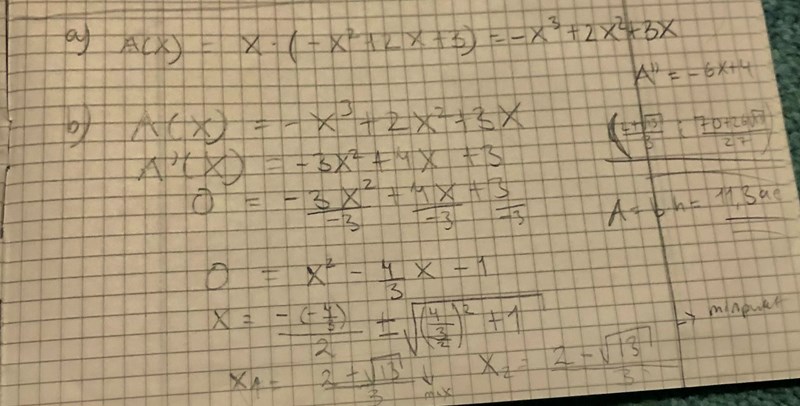 a) A(x) = x · (-x² + 2x + 3) = -x³ + 2x² + 3x
A'' = -6x+4
b) A(x) = -x³ + 2x² + 3x
A'(x) = -3x² + 4x + 3
0 = -3x²/-3 + 4x/-3 + 3/-3
A = b · h = 11,3
0 = x² - 4/3 x - 1
x = -(-4/3)/2 ± √((4/3/2)² + 1)
x₁ = 2+√13/3 → max
x₂ = 2-√13/3